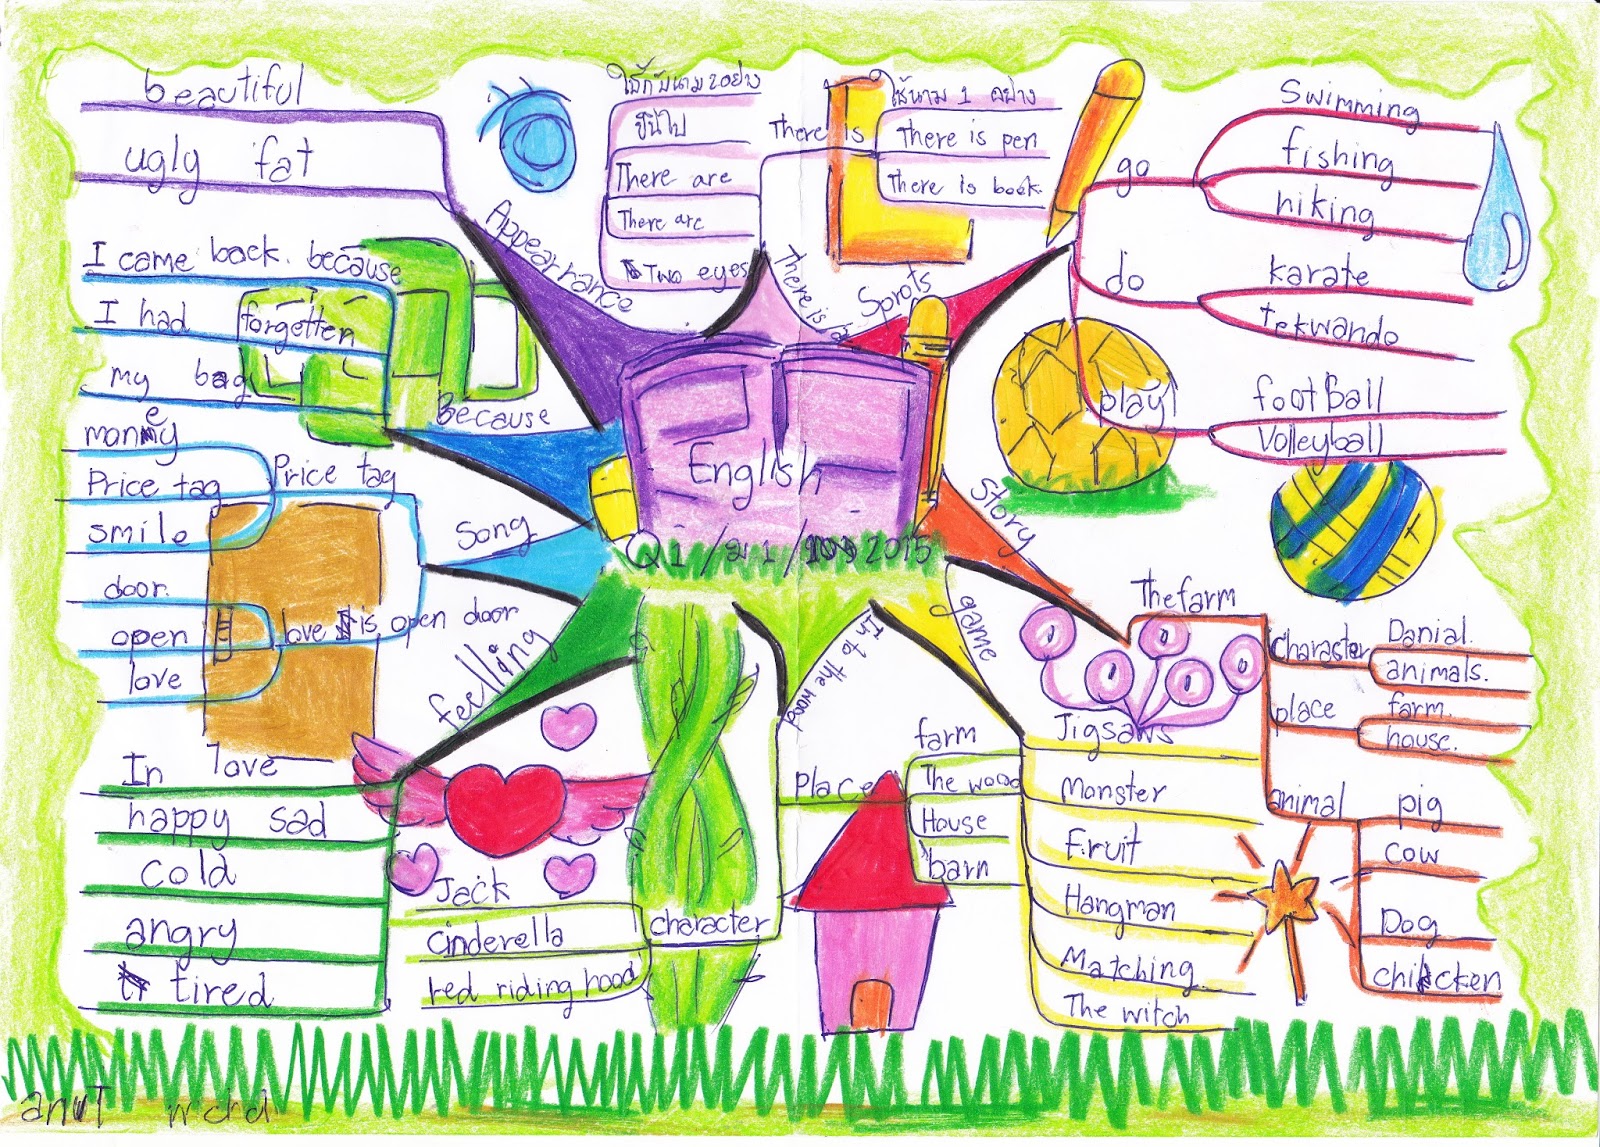 English
Q1/ม1/2015
Appearhance
beautiful
ugly fat
Because
I came back. because
I had forgetten
my bag
Song
Price tag
money
Price tag
smile
love is open door
door.
open
love
feelling
In love
happy sad
cold
angry
tired
In to the wood
character
Jack
cinderella
red riding hood
Place
farm
The wood
House
barn
game
Jigsaws
Monster
Fruit
Hangman
Matching
The witch
Story
The farm
character
Danial.
animals.
place
farm.
house.
animal
pig
cow
Dog
chicken
Sprots
go
Swimming
fishing
hiking
do
karate
tekwando
play
football
Volleyball
There is
There is
ใช้นาม 1 อย่าง
There is pen
There is book.
ใช้กับนาม 2 อย่าง
ขึ้นไป
There are
There are
Two eyes